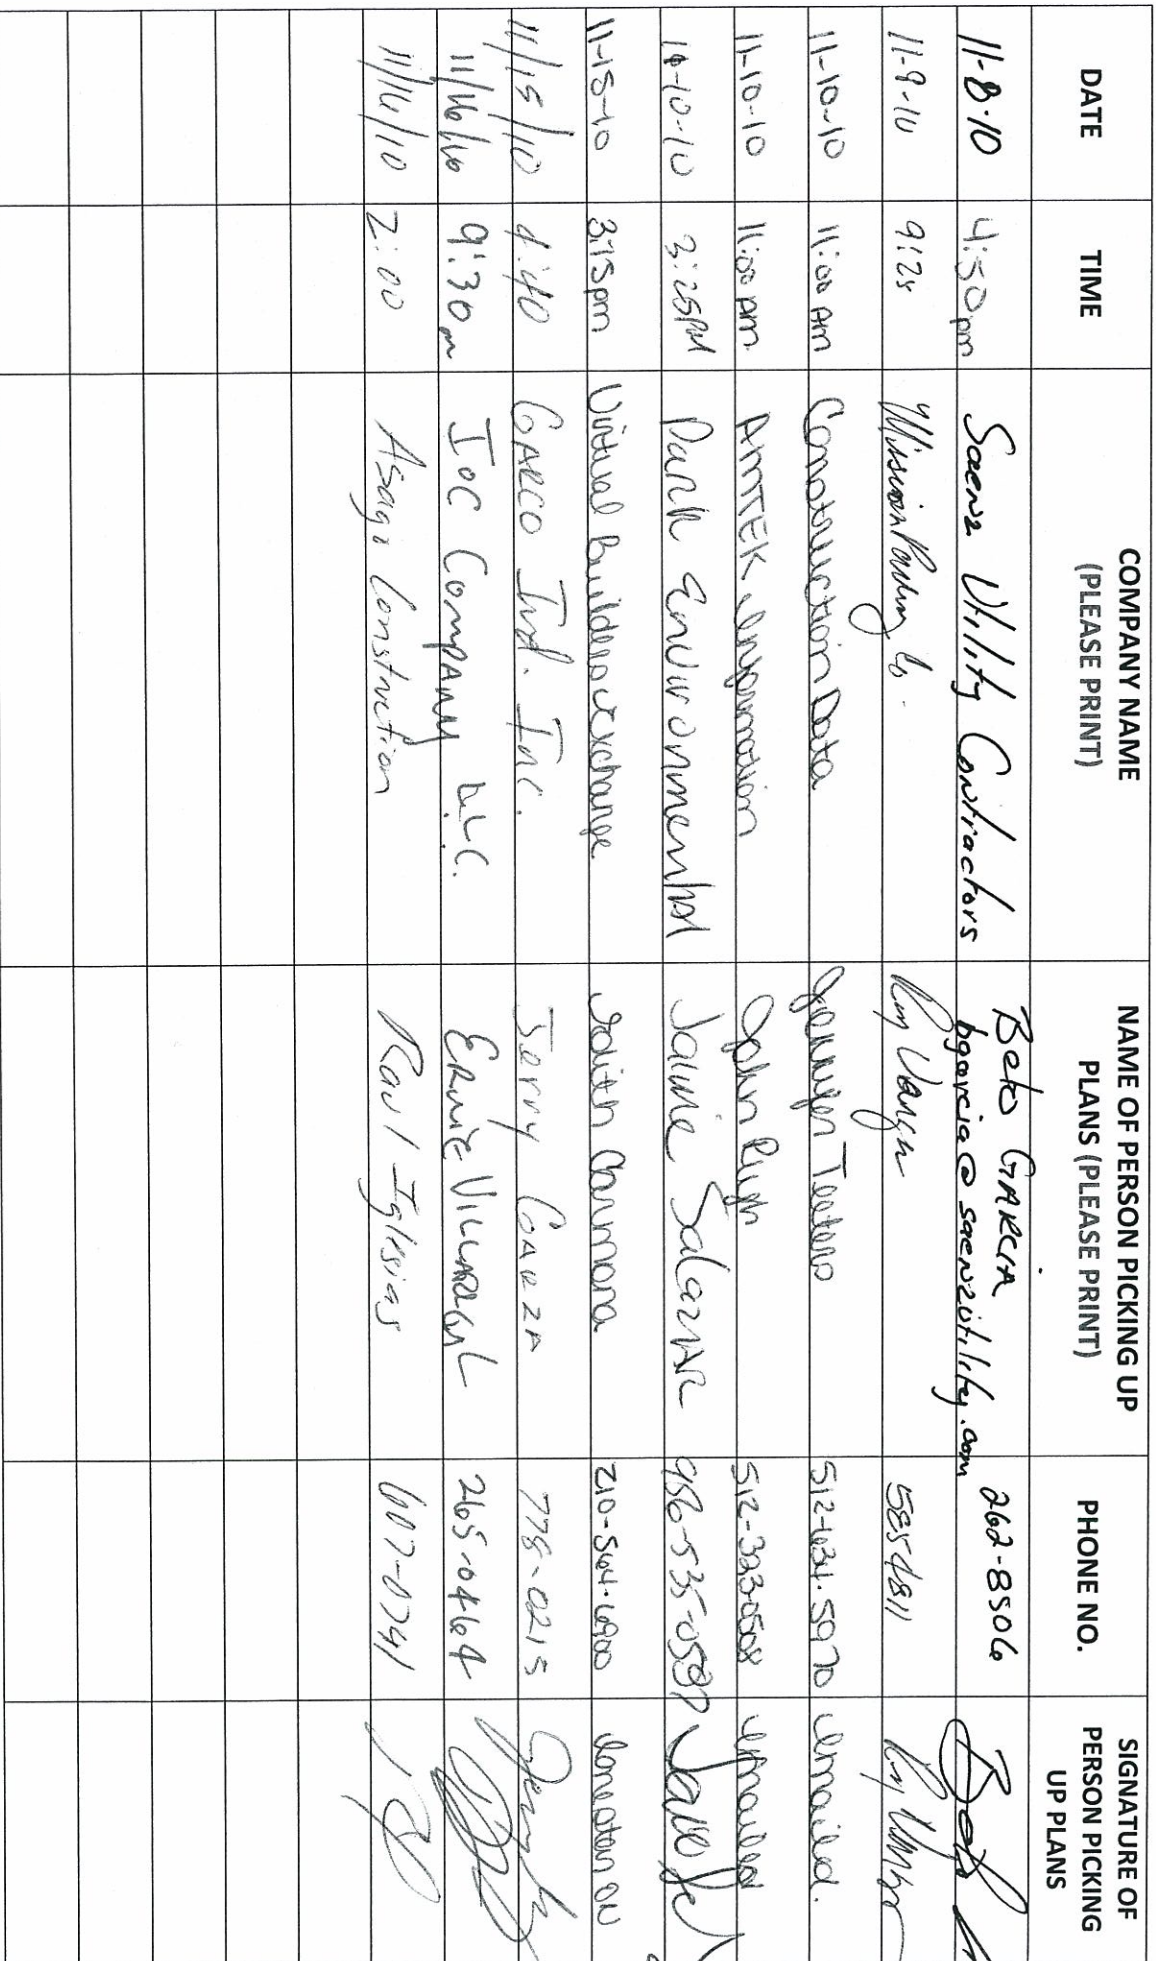 DATE TIME COMPANY NAME (PLEASE PRINT) NAME OF PERSON PICKING UP PLANS (PLEASE PRINT) PHONE NO. SIGNATURE OF PERSON PICKING UP PLANS
11-8-10 4:50pm Saenz Utility Contractors Beto GARCIA 262-8506
bgarcia@saenzutility.com
11-9-10 9:25 Mission Paving Co. Roy 5854811
11-10-10 11:00 Am Construction Data Jennifer Teeters 512-634-5970 emailed.
11-10-10 11:00 Am. AMTEK Information John Pugh 512-323-0508 emailed
11-10-10 3:25PM Park Environmental Jaime Salazar 956-535-0587
11-15-10 3:15pm Virtual Builders Exchange Edith Carmona 210-564-6900
11/15/10 4:40 GARCO Ind. Inc. Jerry GARZA 778-0215
11/16/10 9:30 IOC Company LLC. ERNIE VILLARREAL 265-0464
11/16/10 2:00 Asago Construction Raul Iglesias 607-0741